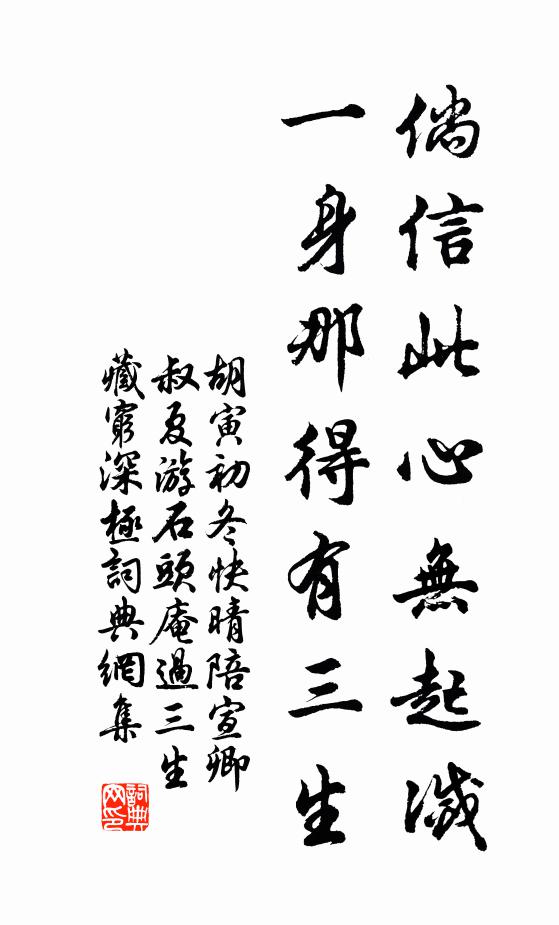 倘信此心無起滅
一身那得有三生
胡寅初冬快晴陪宣卿
叔夏游石頭庵過三生
藏窮深極詞典網集
詞典网印